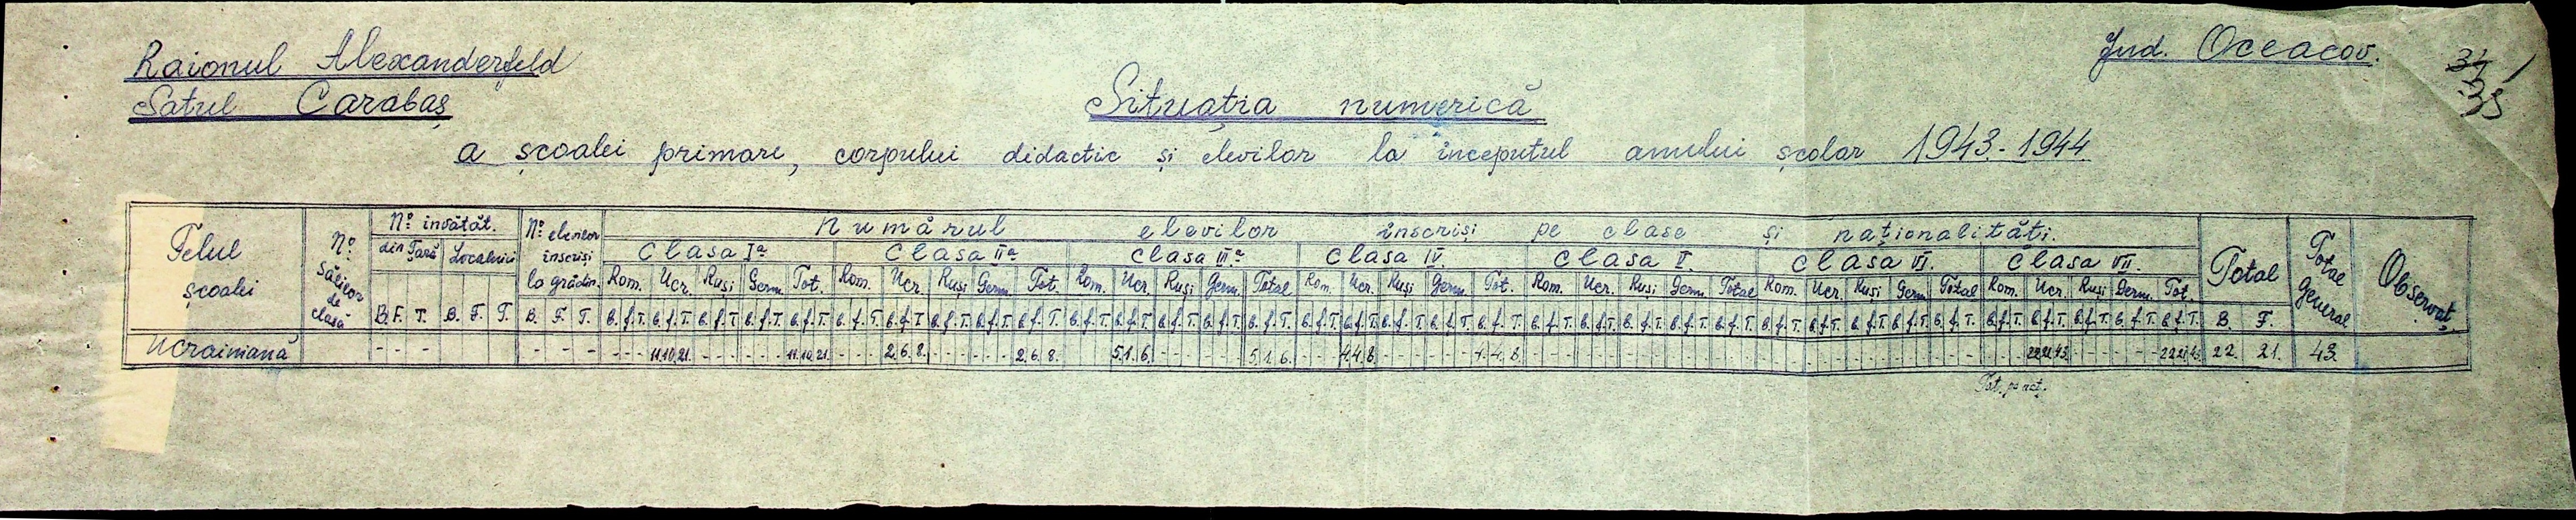 Raionul Alexanderfeld
Jud. Oceacov.
34
35
Satul Carabaș
Situația numerică
a școalei primare, corpului didactic și elevilor la începutul anului școlar 1943-1944
Felul școalei
No. Sălilor de clasă
No. învătăt.
din Țară Localnici
B. F. T. B. F. T.
No. elevilor înscriși la grădin.
B. F. T.
Numărul elevilor înscriși pe clase și naționalităti.
Clasa Ia Clasa IIa Clasa IIIa Clasa IV. Clasa V. Clasa VI. Clasa VII.
Rom. Ucr. Ruși Germ. Tot. Rom. Ucr. Ruși Germ. Tot. Rom. Ucr. Ruși Germ. Total Rom. Ucr. Ruși Germ. Tot. Rom. Ucr. Ruși Germ. Total Rom. Ucr. Ruși Germ. Total Rom. Ucr. Ruși Germ. Tot.
B. f. T. B. f. T. B. f. T. B. f. T. B. f. T. B. f. T. B. f. T. B. f. T. B. f. T. B. f. T. B. f. T. B. f. T. B. f. T. B. f. T. B. f. T. B. f. T. B. f. T. B. f. T. B. f. T. B. f. T. B. f. T. B. f. T. B. f. T. B. f. T. B. f. T. B. f. T. B. f. T. B. f. T. B. f. T. B. f. T. B. f. T. B. f. T. B. f. T. B. f. T. B. f. T.
Total
B. F.
Total general
Observaț.
Ucrainiană - - - - - - - - - - 11. 10. 21. - - - - - - 11. 10. 21. - - - 2. 6. 8. - - - - - - 2. 6. 8. - - - 5. 1. 6. - - - - - - 5. 1. 6. - - - 4. 4. 8. - - - - - - 4. 4. 8. - - - - - - - - - - - - - - - - - - - - - - - - - - - - - - - - - 22. 21. 43. - - - - - - 22. 21. 43. 22. 21. 43.
Tot. pe naț.